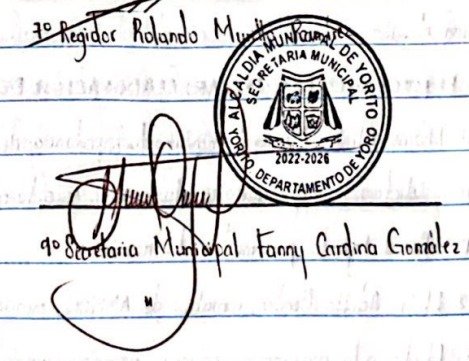 7º Regidor Rolando
ALCALDIA MUNICIPAL DE YORITO
SECRETARIA MUNICIPAL
2022-2026
YORITO DEPARTAMENTO DE YORO
9º Secretaria Municipal Fanny Cardina González